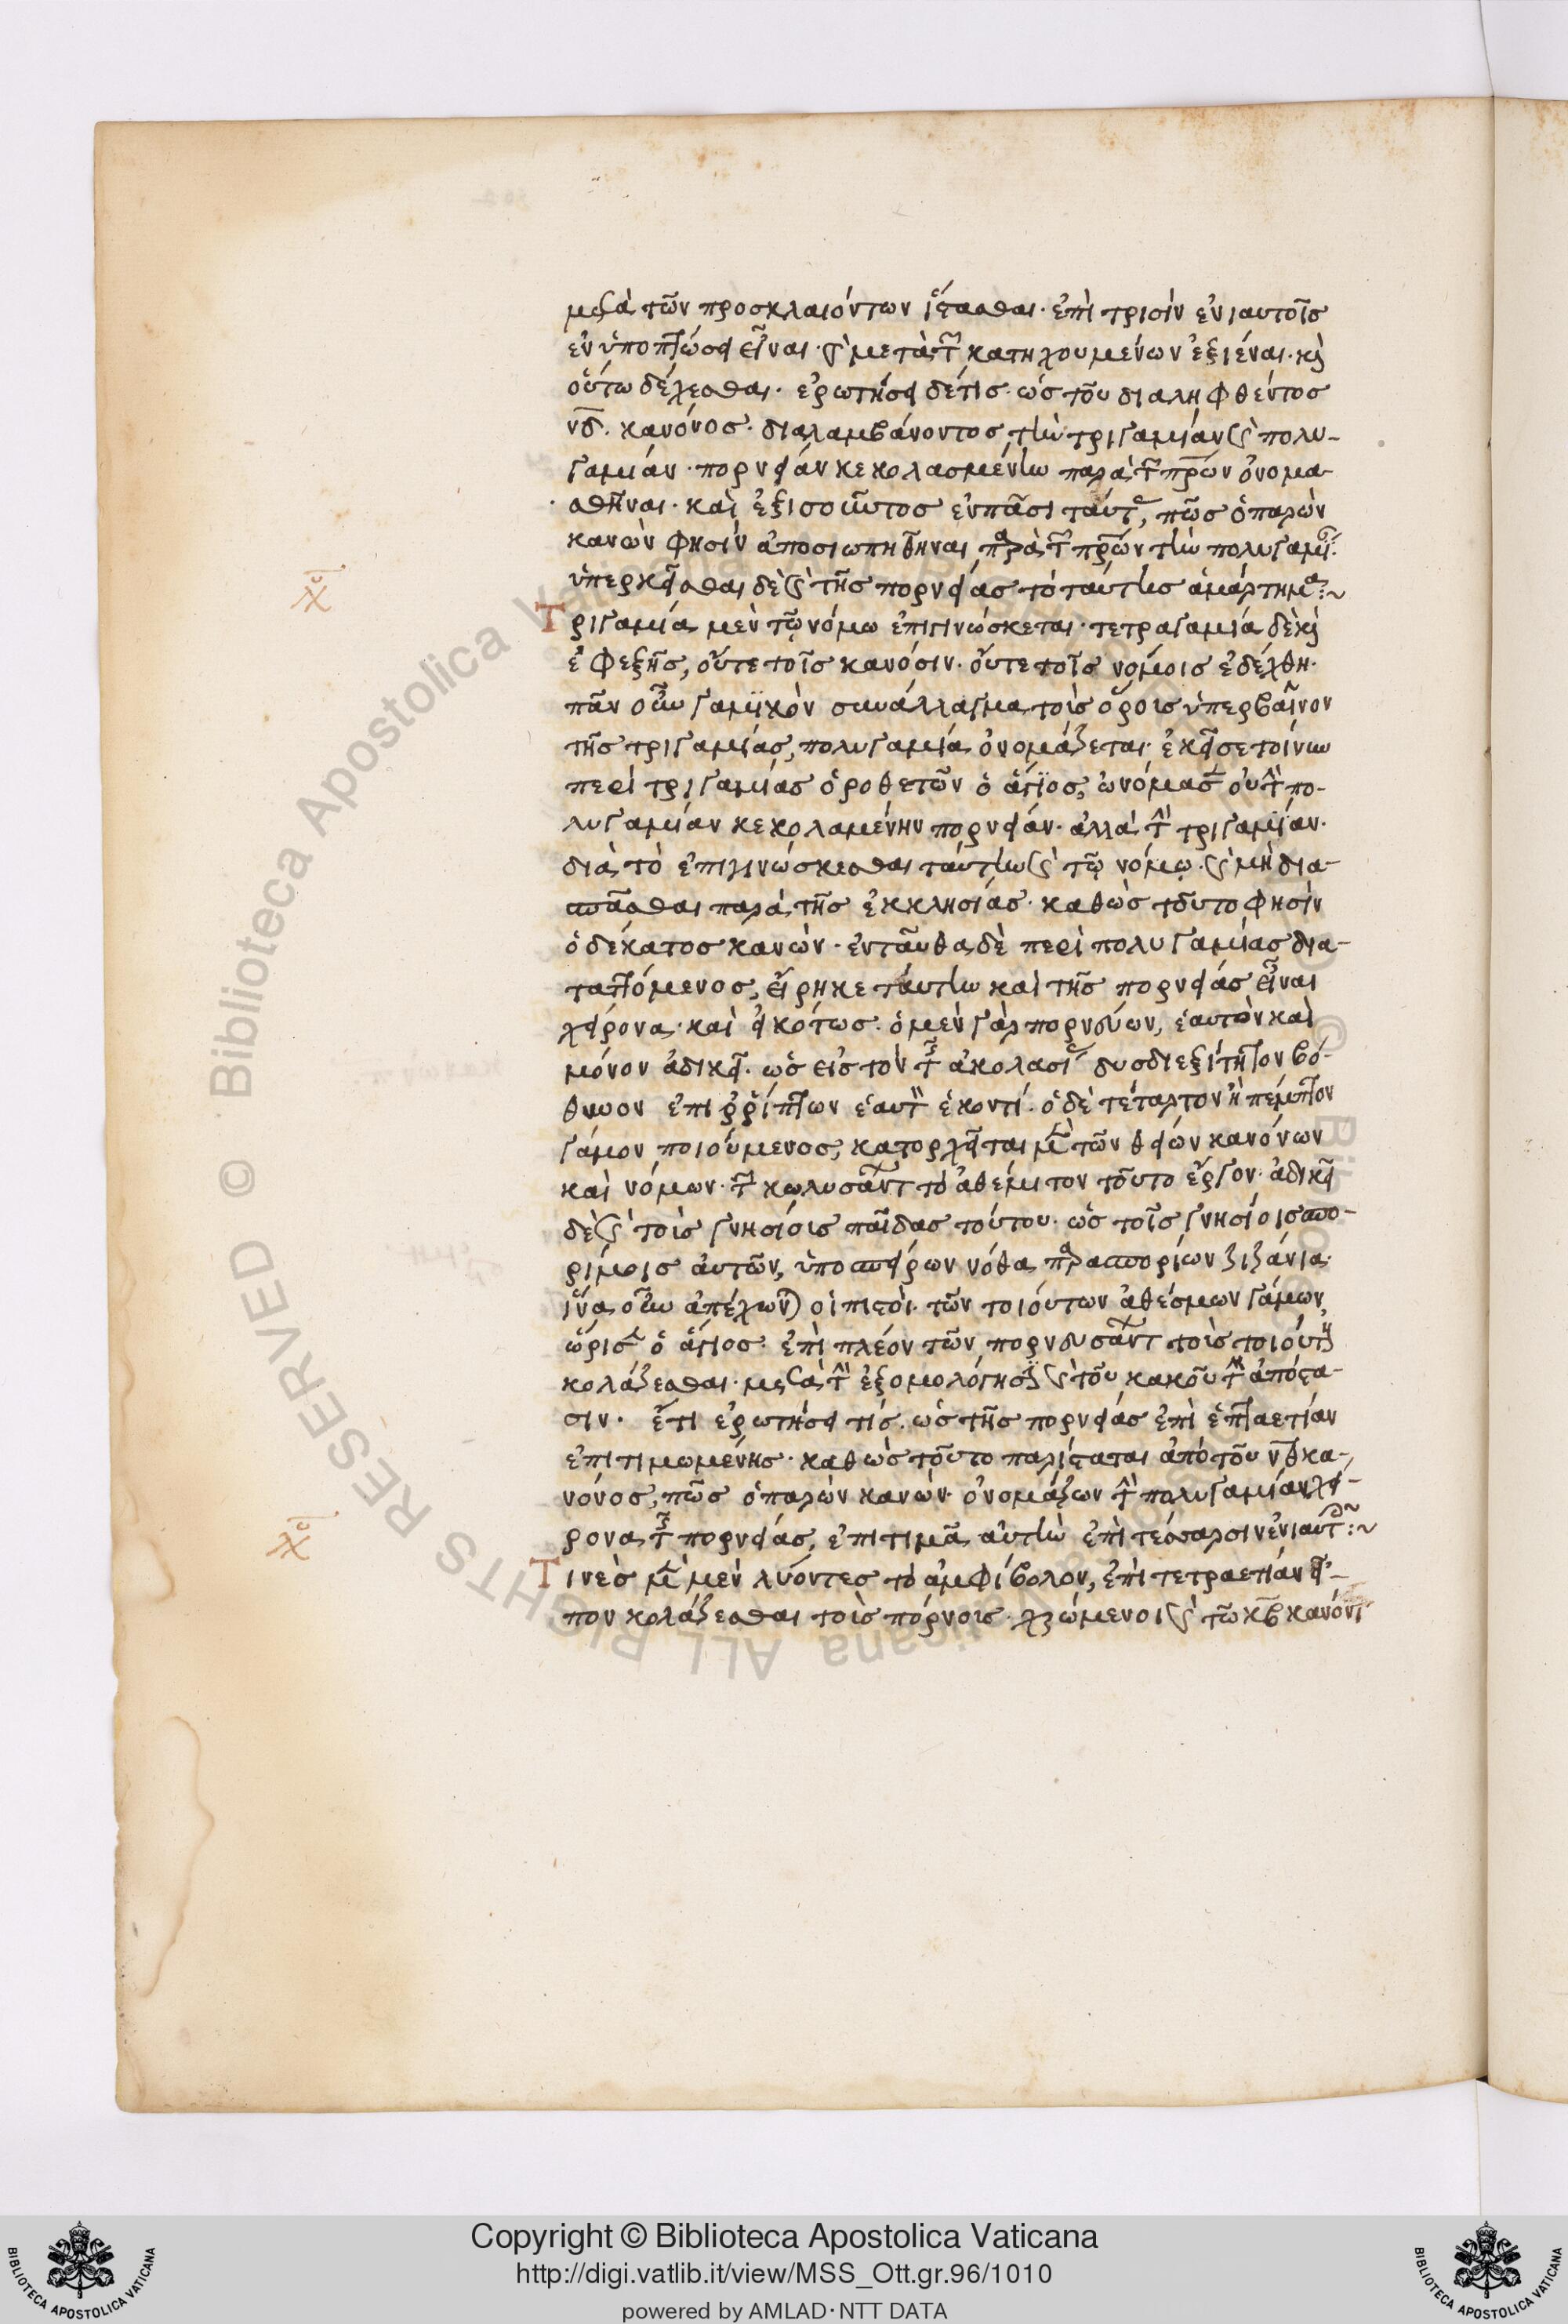 μετὰ τῶν προσκλαιόντων ἵστασθαι· ἐπὶ τρισὶν ἐνιαυτοῖς
ἐν ὑποπτώσει εἶναι· καὶ μετὰ τῶν κατηχουμένων ἐξιέναι· καὶ
οὕτω δέχεσθαι· ἐρωτήσει δέ τις· ὡς τοῦ διαληφθέντος
νδ. κανόνος· διαλαμβάνοντος τὴν τριγαμίαν καὶ πολυ-
γαμίαν· πορνείαν κεκολασμένην παρὰ τῶν πρων ὀνομα-
σθῆναι· καὶ ἐξισοῦντος ἐν πᾶσι ταύτας, πῶς ὁ παρὼν
κανών φησὶν ἀποσιωπηθῆναι παρὰ τῶν πρων τὴν πολυγαμίαν·
ὑπερκεῖσθαι δὲ καὶ τῆς πορνείας τὸ ταύτης ἁμάρτημα:~
Τριγαμία μὲν τῷ νόμω ἐπιγινώσκεται· τετραγαμία δὲ καὶ
ἐφεξῆς, οὔτε τοῖς κανόσιν· οὔτε τοῖς νόμοις ἐδέχθη·
πᾶν οὖν γαμικὸν συνάλλαγμα τοὺς ὅρους ὑπερβαῖνον
τῆς τριγαμίας, πολυγαμία ὀνομάζεται· ἐκεῖσε τοίνυν
περὶ τριγαμίας ὁροθετῶν ὁ ἅγιος, ὠνόμασεν οὐ τὴν πο-
λυγαμίαν κεκολαμένην πορνείαν· ἀλλὰ τὴν τριγαμίαν·
διὰ τὸ ἐπιγινώσκεσθαι ταύτην καὶ τῷ νόμῳ· καὶ μὴ δια-
σπᾶσθαι παρὰ τῆς ἐκκλησίας· καθὼς τοῦτο φησὶν
ὁ δέκατος κανών· ἐνταῦθα δὲ περὶ πολυγαμίας δια-
ταττόμενος, εἴρηκε ταύτην καὶ τῆς πορνείας εἶναι
χείρονα· καὶ εἰκότως· ὁ μὲν γὰρ πορνεύων, ἑαυτὸν καὶ
μόνον ἀδικεῖ· ὡς εἰς τὸν τῆς ἀκολασίας δυσδιεξίτητον βό-
θυνον ἐπιρρίπτων ἑαυτὸν ἑκοντί· ὁ δὲ τέταρτον ἢ πέμπτον
γάμον ποιούμενος, κατορχεῖται μετὰ τῶν θείων κανόνων
καὶ νόμων· τῶν κωλυσάντων τὸ ἀθέμιτον τοῦτο ἔργον· ἀδικεῖ
δὲ καὶ τοὺς γνησίους παῖδας τούτου· ὡς τοῖς γνησίοις σπο-
ρίμοις αὐτῶν, ὑποσπείρων νόθα παρασπορίων ζιζάνια·
ἵνα οὖν ἀπέχωνται οἱ πιστοὶ· τῶν τοιούτων ἀθέσμων γάμων,
ὥρισεν ὁ ἅγιος· ἐπὶ πλέον τῶν πορνευσάντων τοὺς τοιούτους
κολάζεσθαι· μετὰ τὴν ἐξομολόγησιν καὶ τοῦ κακοῦ τὴν ἀπόστα-
σιν· ἔτι ἐρωτήσει τίς· ὡς τῆς πορνείας ἐπὶ ἑπταετίαν
ἐπιτιμωμένης· καθὼς τοῦτο παρίσταται ἀπὸ τοῦ νθ κα-
νόνος, πῶς ὁ παρὼν κανὼν· ὀνομάζων τὴν πολυγαμίαν χεί-
ρονα τῆς πορνείας, ἐπιτιμᾶ αὐτὴν ἐπὶ τέσσαρσιν ἐνιαυτοῖς:~
Τινὲς μὲν λύοντες τὸ ἀμφίβολον, ἐπὶ τετραετίαν εἶ-
πον κολάζεσθαι τοὺς πόρνους· χρώμενοι καὶ τῶ κβ κανόνι
Copyright © Biblioteca Apostolica Vaticana
http://digi.vatlib.it/view/MSS_Ott.gr.96/1010
powered by AMLAD·NTT DATA
BIBLIOTECA APOSTOLICA VATICANA
BIBLIOTECA APOSTOLICA VATICANA